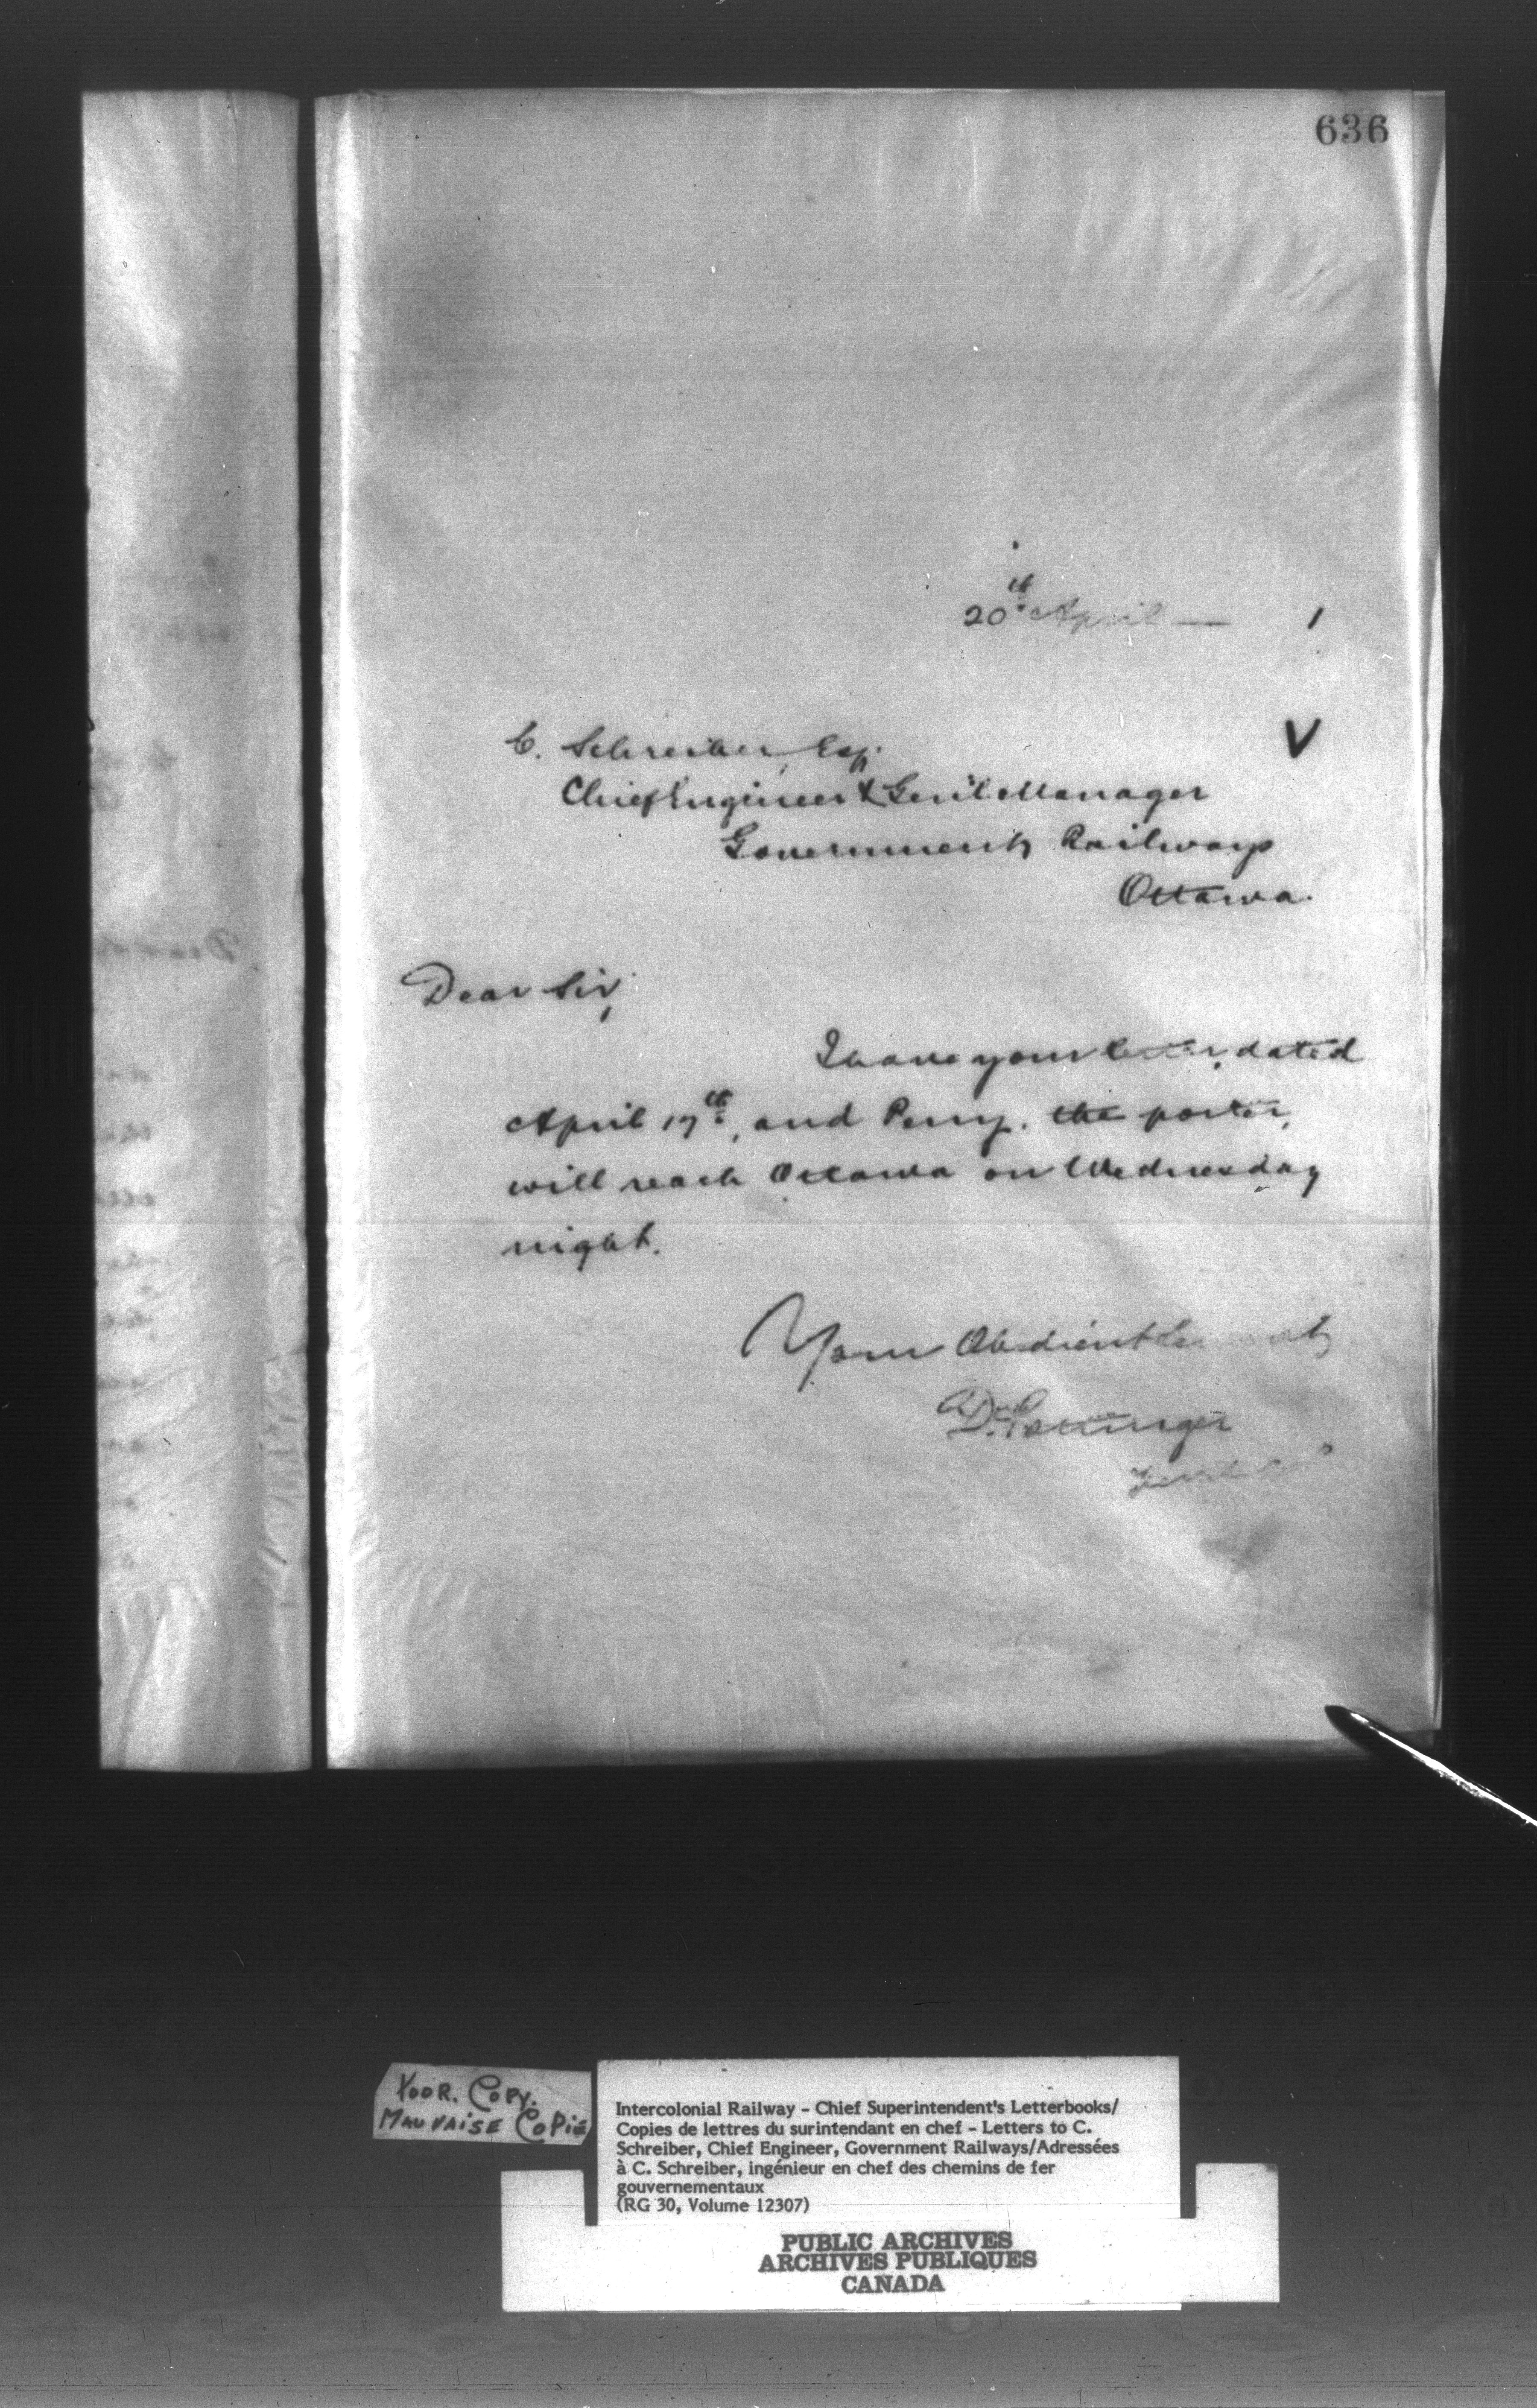 636
20th April — 1
V
C. Schreiber, Esq.
Chief Engineer & Gen'l Manager
Government Railways
Ottawa.
Dear Sir,
I have your letter, dated
April 17th, and Perry, the porter,
will reach Ottawa on Wednesday
night.
Your Obedient
D. Pottinger
POOR. COPY.
MAUVAISE COPIE
Intercolonial Railway - Chief Superintendent's Letterbooks/
Copies de lettres du surintendant en chef - Letters to C.
Schreiber, Chief Engineer, Government Railways/Adressées
à C. Schreiber, ingénieur en chef des chemins de fer
gouvernementaux
(RG 30, Volume 12307)
PUBLIC ARCHIVES
ARCHIVES PUBLIQUES
CANADA